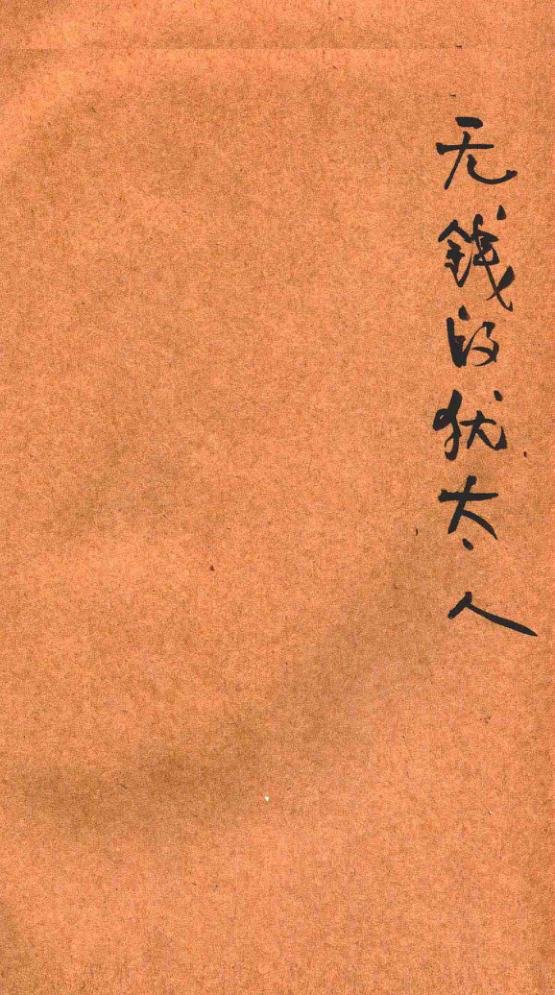 无錢的犹太人